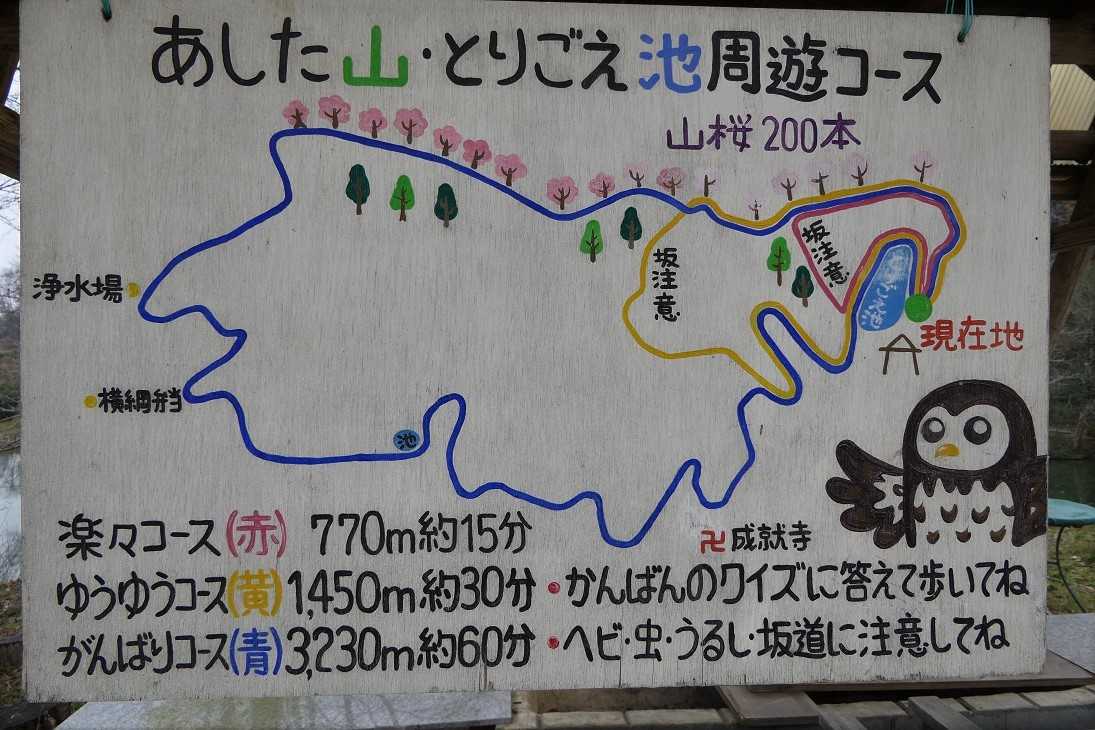 あした山・とりごえ池周遊コース
山桜200本
坂注意
坂注意
浄水場
とりごえ池
現在地
横綱弁当
池
卍成就寺
楽々コース(赤) 770m約15分
ゆうゆうコース(黄)1,450m約30分
・かんばんのクイズに答えて歩いてね
がんばりコース(青)3,230m約60分
・ヘビ・虫・うるし・坂道に注意してね